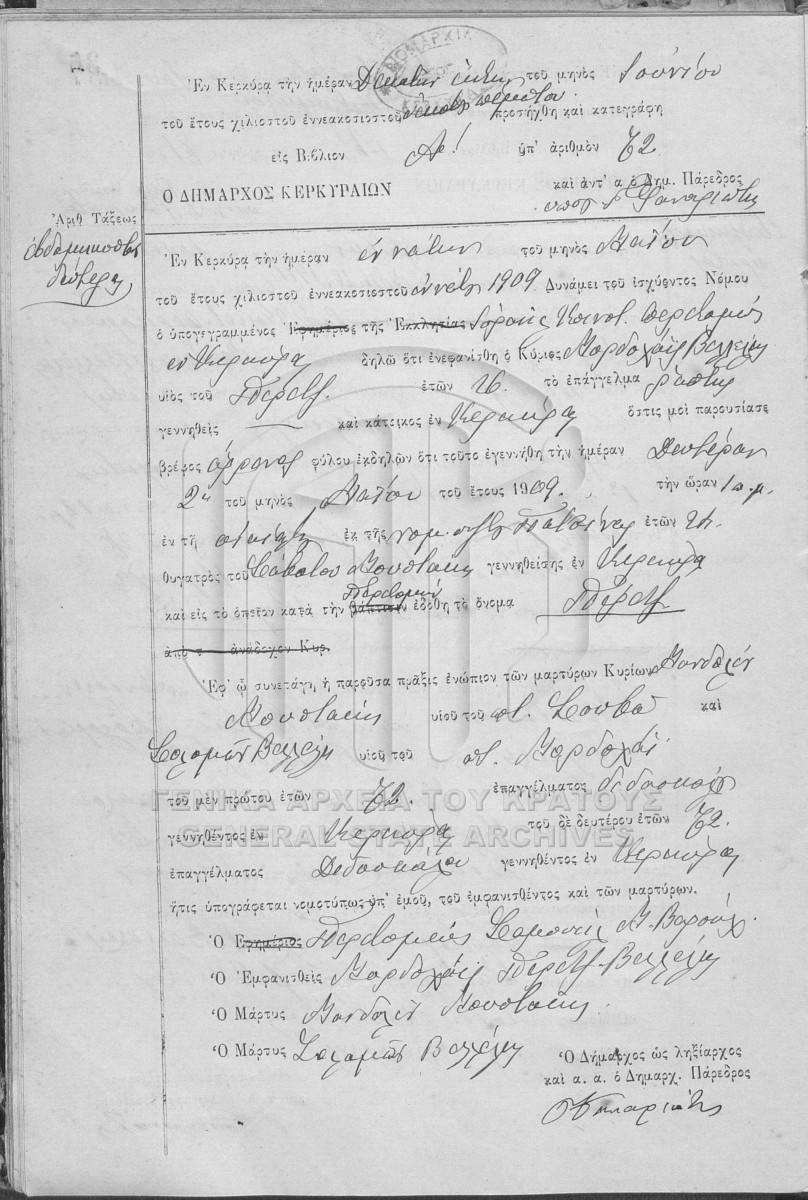 Ἐν Κερκύρᾳ τὴν ἡμέραν Δεκάτην ἕκτην τοῦ μηνὸς Ἰουνίου
τοῦ ἔτους χιλιοστοῦ ἐννεακοσιοστοῦ προσήχθη καὶ κατεγράφη
εἰς Βιβλίον Αον ὑπ' ἀριθμὸν 72
Ὁ ΔΗΜΑΡΧΟΣ ΚΕΡΚΥΡΑΙΩΝ
καὶ ἀντ' α ὁ Δημ. Πάρεδρος
Ἀριθ Τάξεως
ἑβδομηκοστὴ
δευτέρα
Ἐν Κερκύρᾳ τὴν ἡμέραν ἐννάτην τοῦ μηνὸς Μαΐου
τοῦ ἔτους χιλιοστοῦ ἐννεακοσιοστοῦ ἐννάτου 1909 Δυνάμει τοῦ ἰσχύοντος Νόμου
ὁ ὑπογεγραμμένος Ἐφημέριος τῆς Ἐκκλησίας Περιτομεὺς
ἐν Κερκύρᾳ δηλῶ ὅτι ἐνεφανίσθη ὁ Κύριος Μορδοχάη Βελλέλης
υἱὸς τοῦ Περέτζ ἐτῶν 26. τὸ ἐπάγγελμα ράπτης
γεννηθεὶς καὶ κάτοικος ἐν Κερκύρᾳ ὅστις μοὶ παρουσίασε
βρέφος ἄρρενος φύλου ἐκδηλῶν ὅτι τοῦτο ἐγεννήθη τὴν ἡμέραν Δευτέραν
τοῦ μηνὸς Μαΐου τοῦ ἔτους 1909. τὴν ὥραν 1 π.μ.
ἐν τῇ οἰκίᾳ ἐκ τῆς ἐτῶν
θυγατρὸς τοῦ Σάββατου Μουστάκη γεννηθείσης ἐν Κερκύρᾳ
καὶ εἰς τὸ ὁποῖον κατὰ τὴν βάπτισιν Περιτομὴν ἐδόθη τὸ ὄνομα Περέτζ
ἀπὸ τ ἀνάδοχον Κυρ.
Ἐφ' ᾧ συνετάγη ἡ παροῦσα πρᾶξις ἐνώπιον τῶν μαρτύρων Κυρίων Μανδολὶν
Μουστάκης υἱοῦ τοῦ ποτ. καὶ
Σολομῶν Βελλέλη υἱοῦ τοῦ ποτ. Μορδοχάη
τοῦ μὲν πρώτου ἐτῶν 72. ἐπαγγέλματος διδασκάλου
γεννηθέντος ἐν Κερκύρᾳ τοῦ δὲ δευτέρου ἐτῶν 72.
ἐπαγγέλματος Διδασκάλου γεννηθέντος ἐν Κερκύρᾳ
ἥτις ὑπογράφεται νομοτύπως ὑπ' ἐμοῦ, τοῦ ἐμφανισθέντος καὶ τῶν μαρτύρων.
Ὁ Ἐφημέριος Περιτομεὺς Σαμουὴλ Μ. Βαρούχ.
Ὁ Ἐμφανισθεὶς Μορδοχάη Περέτζ Βελλέλης
Ὁ Μάρτυς Μανδολὶν Μουστάκης.
Ὁ Μάρτυς Σολομῶν Βελλέλη
Ὁ Δήμαρχος ὡς ληξίαρχος
καὶ α. α. ὁ Δημαρχ. Πάρεδρος
ΓΕΝΙΚΑ ΑΡΧΕΙΑ ΤΟΥ ΚΡΑΤΟΥΣ
GENERAL STATE ARCHIVES